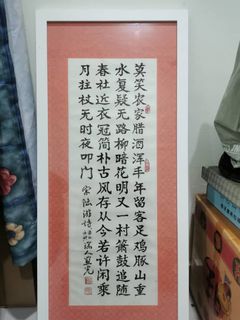 莫笑农家腊酒浑丰年留客足鸡豚山重
水复疑无路柳暗花明又一村箫鼓追随
春社近衣冠简朴古风存从今若许闲乘
月拄杖无时夜叩门 宋陆游诗